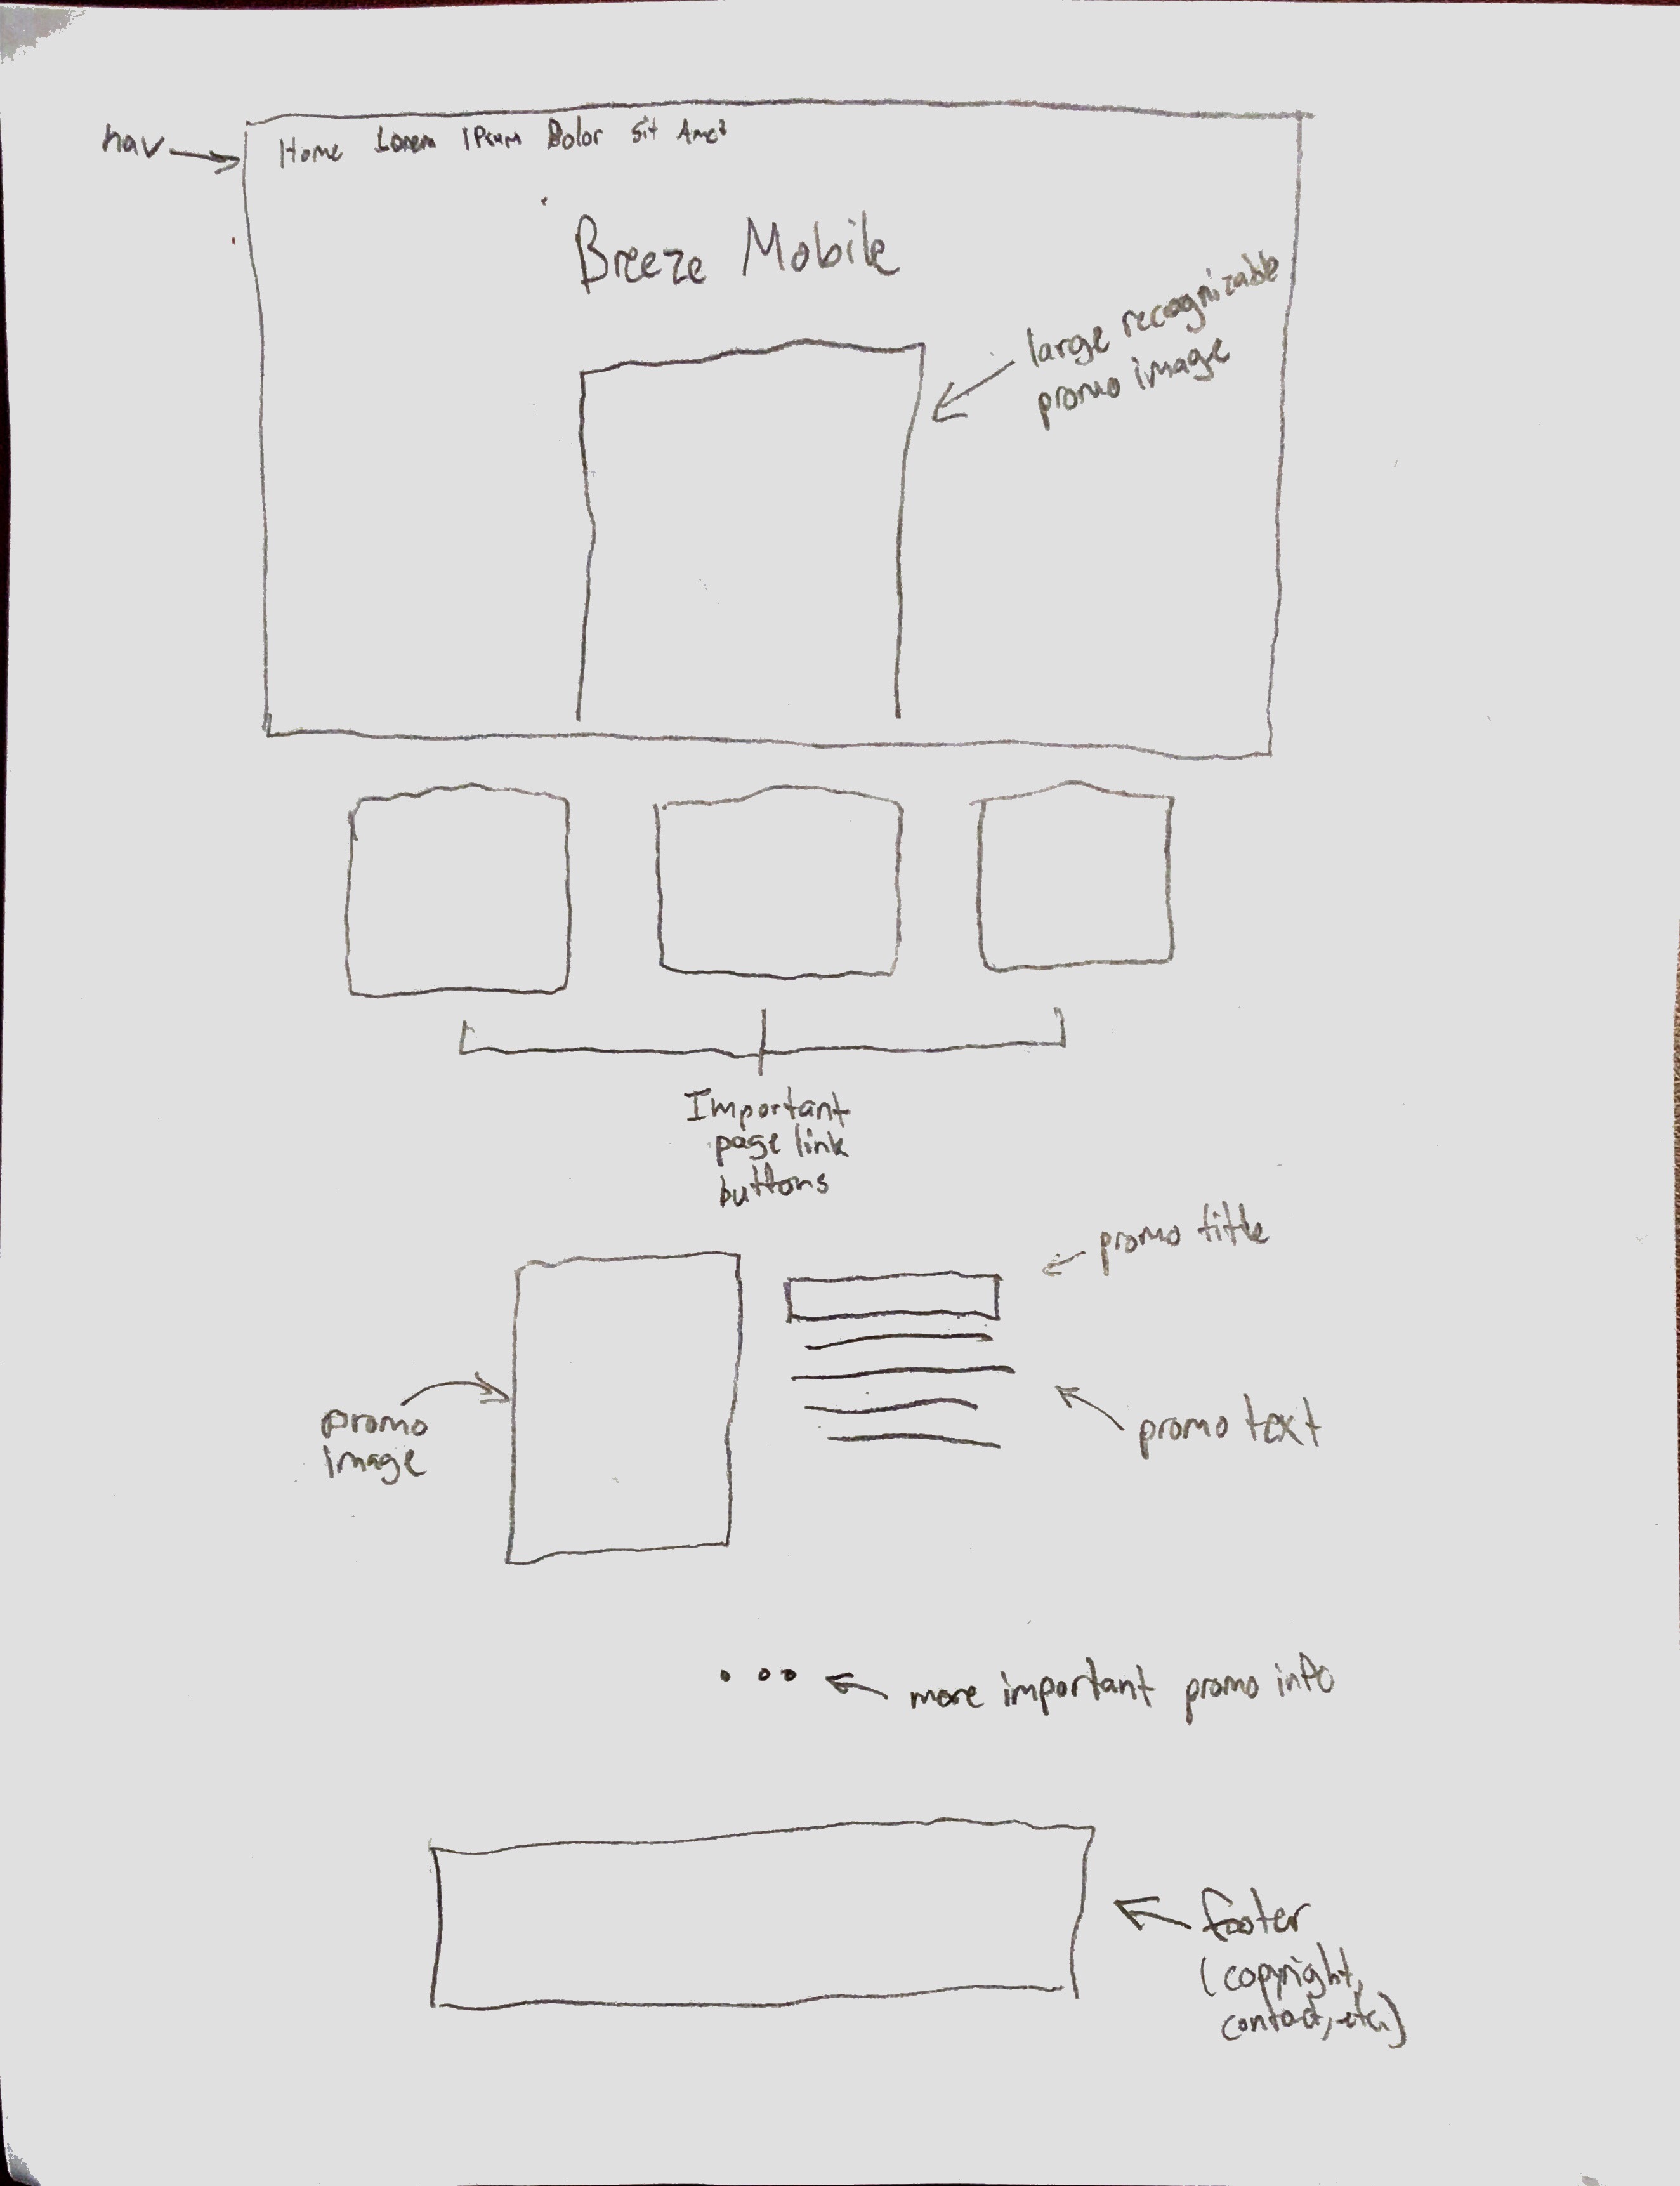 nav
Home Lorem Ipsum Dolor Sit Amet
Breeze Mobile
large recognizable
promo image
Important
page link
buttons
promo title
promo
image
promo text
more important promo info
footer
(copyright,
contact, etc.)